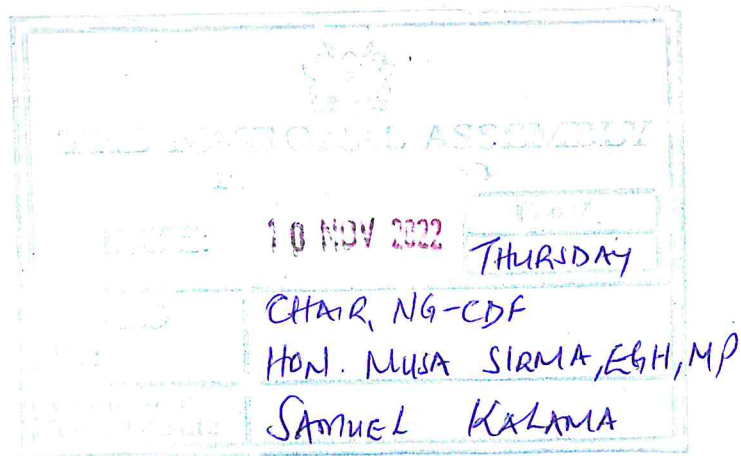 THE NATIONAL ASSEMBLY
DATE: 10 NOV 2022
THURSDAY
CHAIR, NG-CDF
HON. MUSA SIRMA, EGH, MP
SAMUEL KALAMA